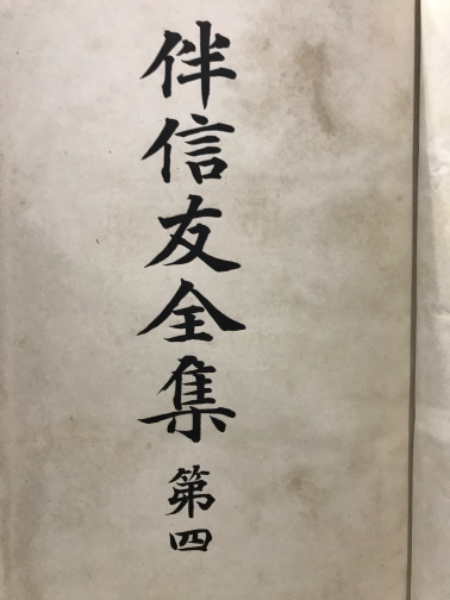 伴信友全集 第四